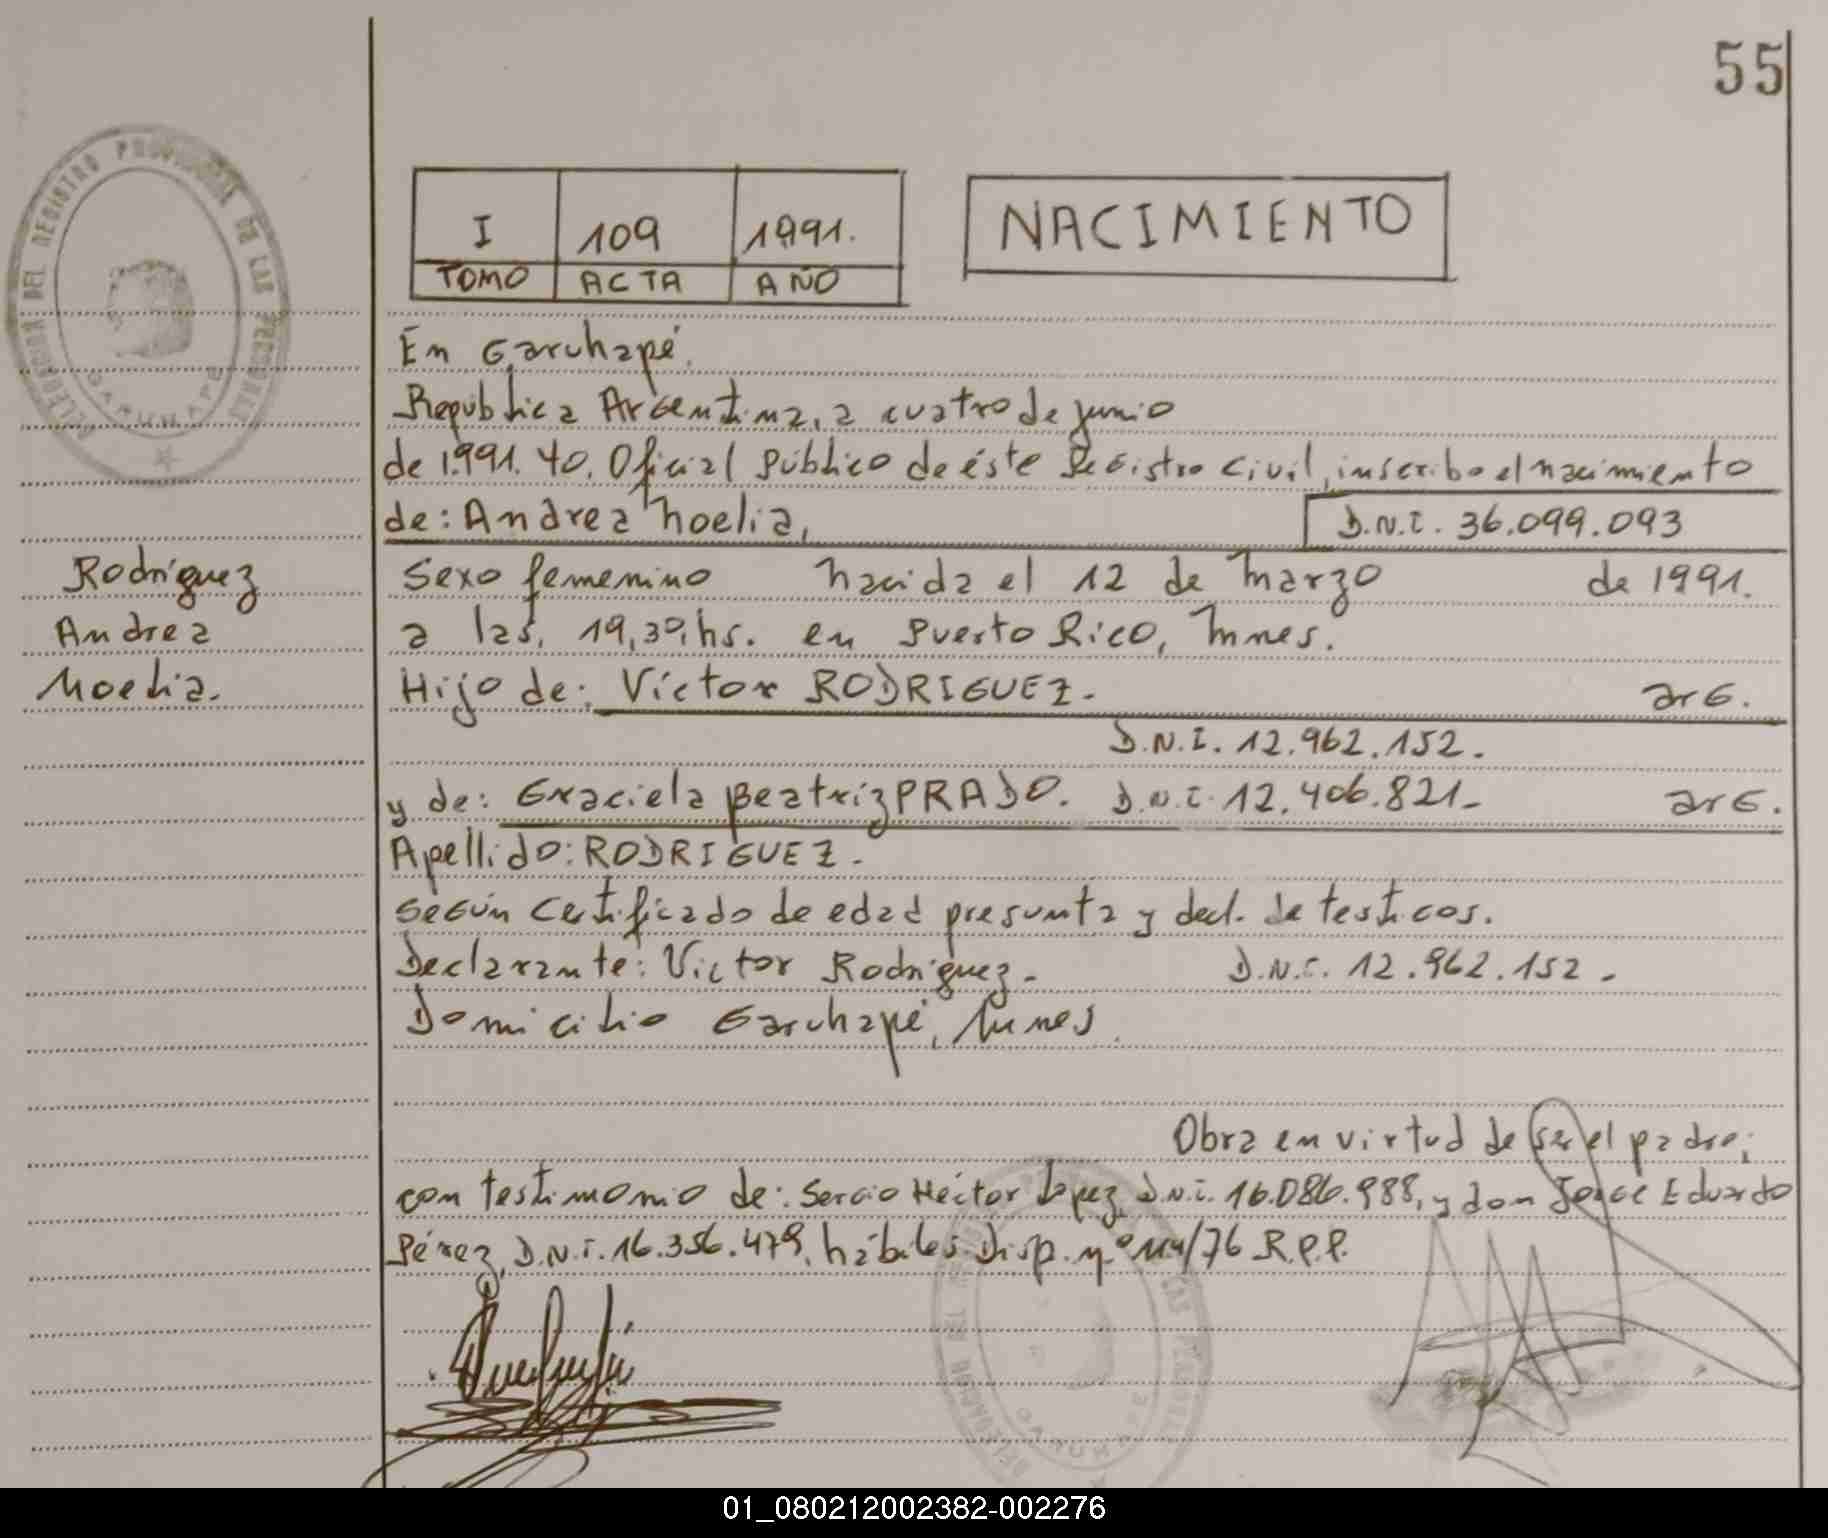 55
DELEGACION DEL REGISTRO PROVINCIAL DE LAS PERSONAS
GARUHAPE
I 109 1991.
TOMO ACTA AÑO
NACIMIENTO
En Garuhapé.
República Argentina, a cuatro de junio
de 1.991. yo. Oficial Público de éste Registro Civil, inscribo el nacimiento
de: Andrea Noelia, D.N.I. 36.099.093
Rodríguez
Andrea
Noelia.
Sexo femenino nacida el 12 de Marzo de 1991.
a las, 19,30,hs. en Puerto Rico, Mnes.
Hijo de: Víctor RODRIGUEZ. arg.
D.N.I. 12.962.152.
y de: Graciela Beatriz PRADO. D.N.I. 12.406.821- arg.
Apellido: RODRIGUEZ.
Según certificado de edad presunta y decl. de testigos.
Declarante: Victor Rodríguez. D.N.I. 12.962.152.
Domicilio Garuhapé, Mnes.
Obra en virtud de ser el padre;
con testimonio de: Sergio Héctor López, D.N.I. 16.086.988, y don Jorge Eduardo
Pérez, D.N.I. 16.356.479, hábiles Disp. nº 114/76 R.P.P.
DELEGACION DEL REGISTRO PROVINCIAL DE LAS PERSONAS
GARUHAPE
01_080212002382-002276